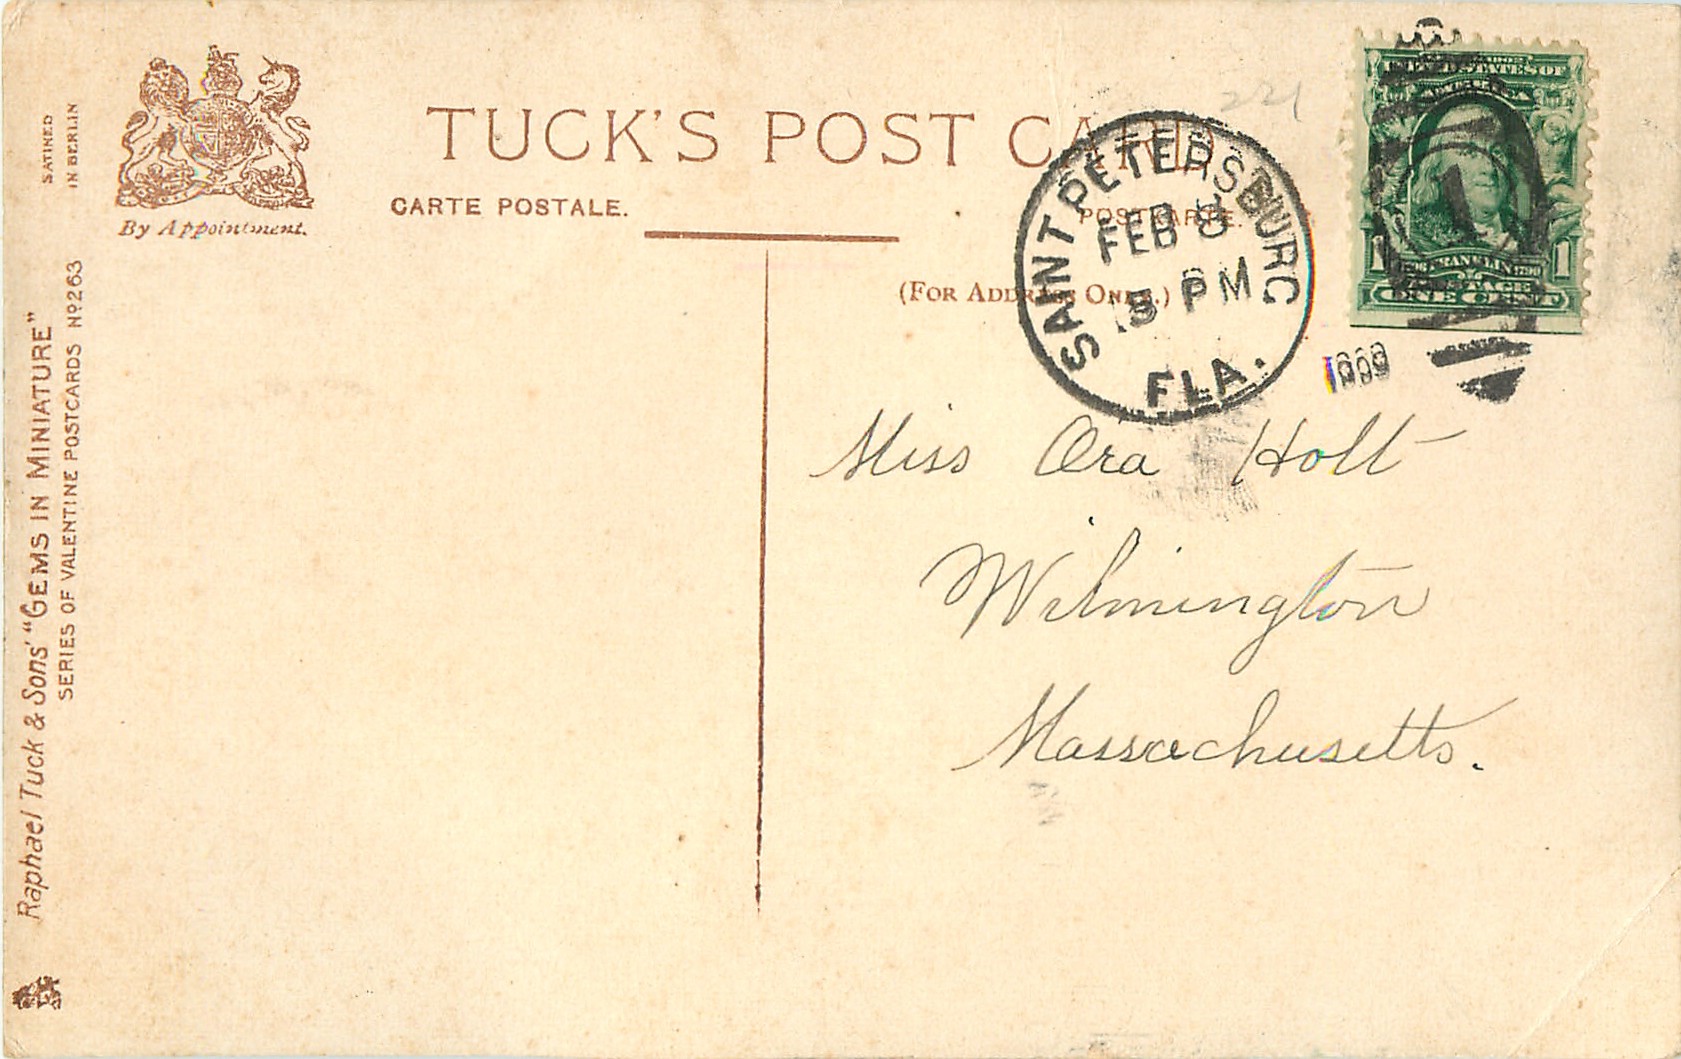 SATINED
IN BERLIN
By Appointment.
TUCK'S POST CARD
CARTE POSTALE.
POSTKARTE.
(FOR ADDRESS ONLY.)
Raphael Tuck & Sons' "GEMS IN MINIATURE"
SERIES OF VALENTINE POSTCARDS Nº 263
SAINT PETERSBURG
FEB 8
PM
FLA.
1909
221
UNITED STATES OF
AMERICA
1
FRANKLIN
1
POSTAGE
ONE CENT
Miss Ora Holt
Wilmington
Massachusetts.